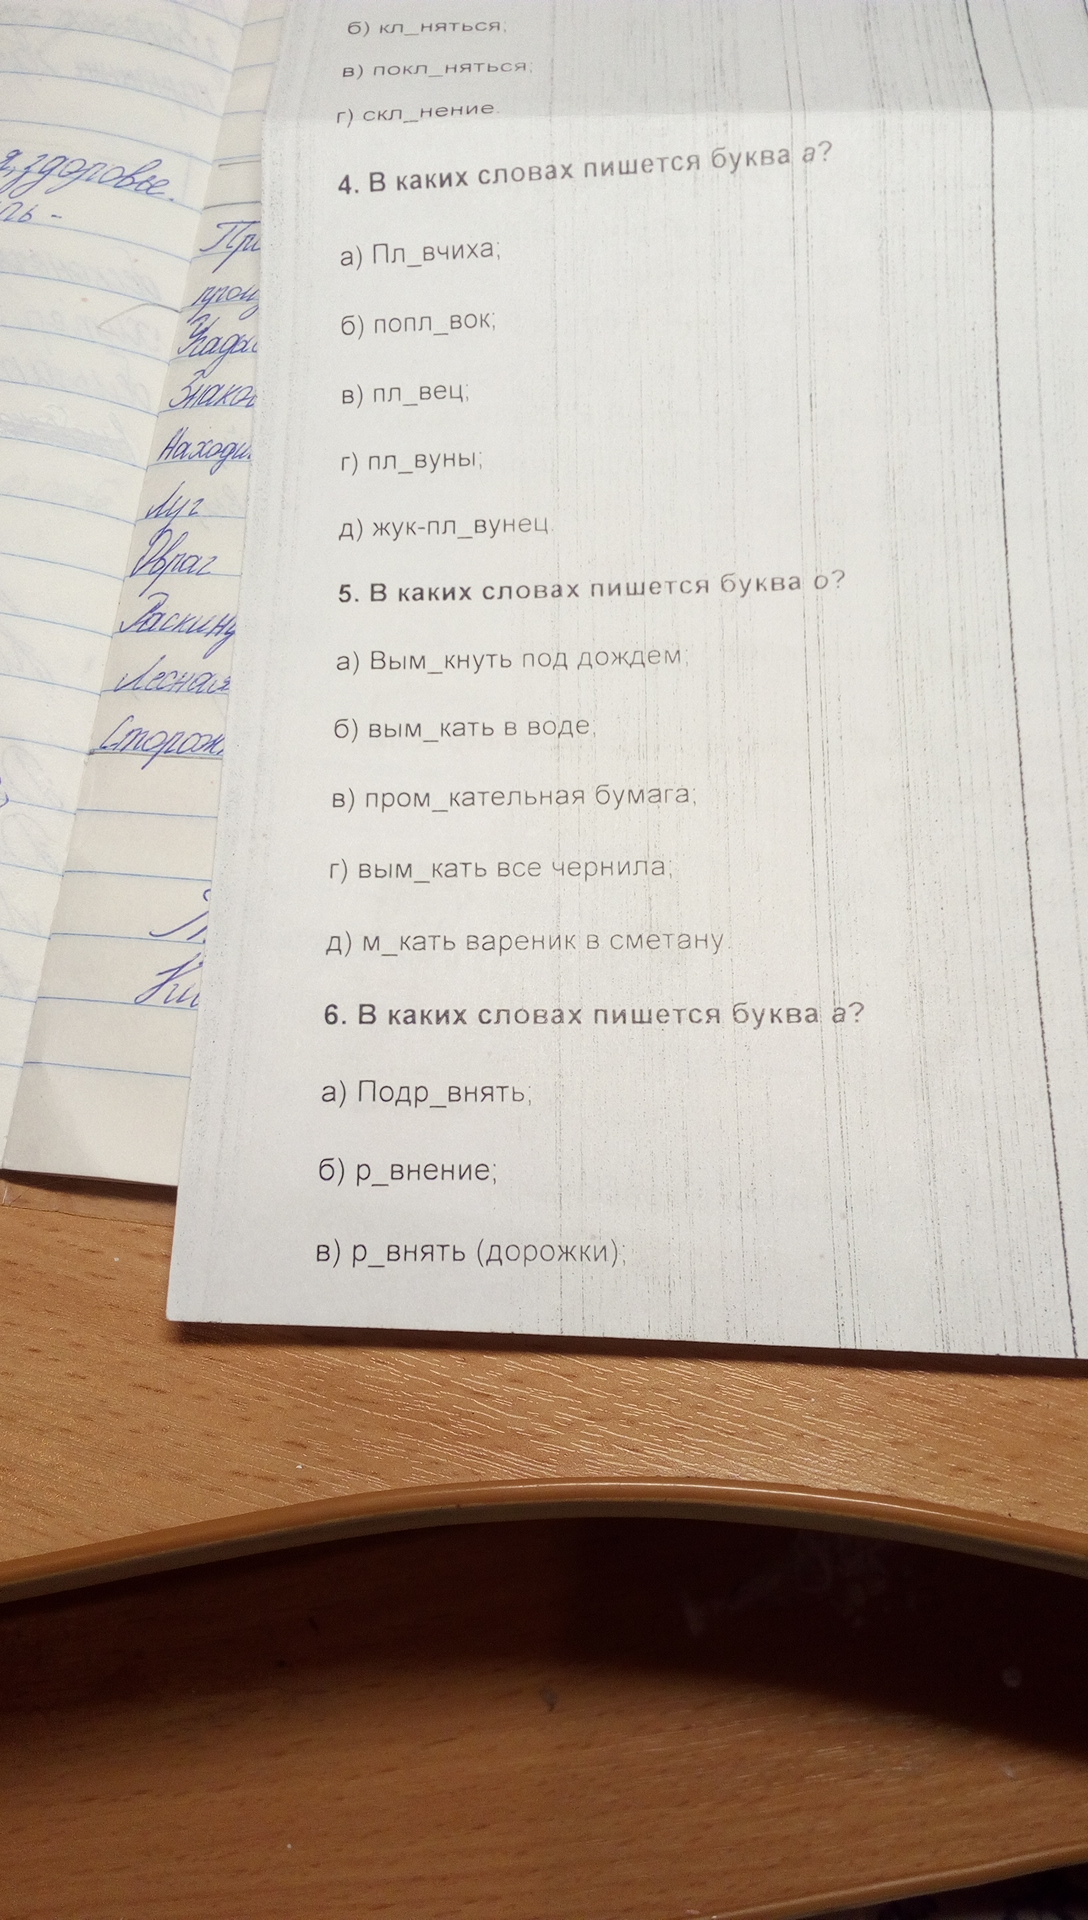 б) кл_няться;
в) покл_няться;
г) скл_нение.
4. В каких словах пишется буква а?
а) Пл_вчиха;
б) попл_вок;
в) пл_вец;
г) пл_вуны;
д) жук-пл_вунец.
5. В каких словах пишется буква о?
а) Вым_кнуть под дождем;
б) вым_кать в воде;
в) пром_кательная бумага;
г) вым_кать все чернила;
д) м_кать вареник в сметану.
6. В каких словах пишется буква а?
а) Подр_внять;
б) р_внение;
в) р_внять (дорожки);
здоровье.
Луг
Овраг
Лесная